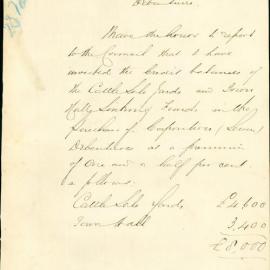 Debentures.
I have the honor to report
to the Council that I have
invested the credit balances
of the Cattle Sale Yards and Town
Hall Sinking Funds in the
purchase of Corporation (Seven)
Debentures at a premium
of one and a half per cent
as follows.
Cattle Sale Yards £4,600
Town Hall 3,400
£8,000